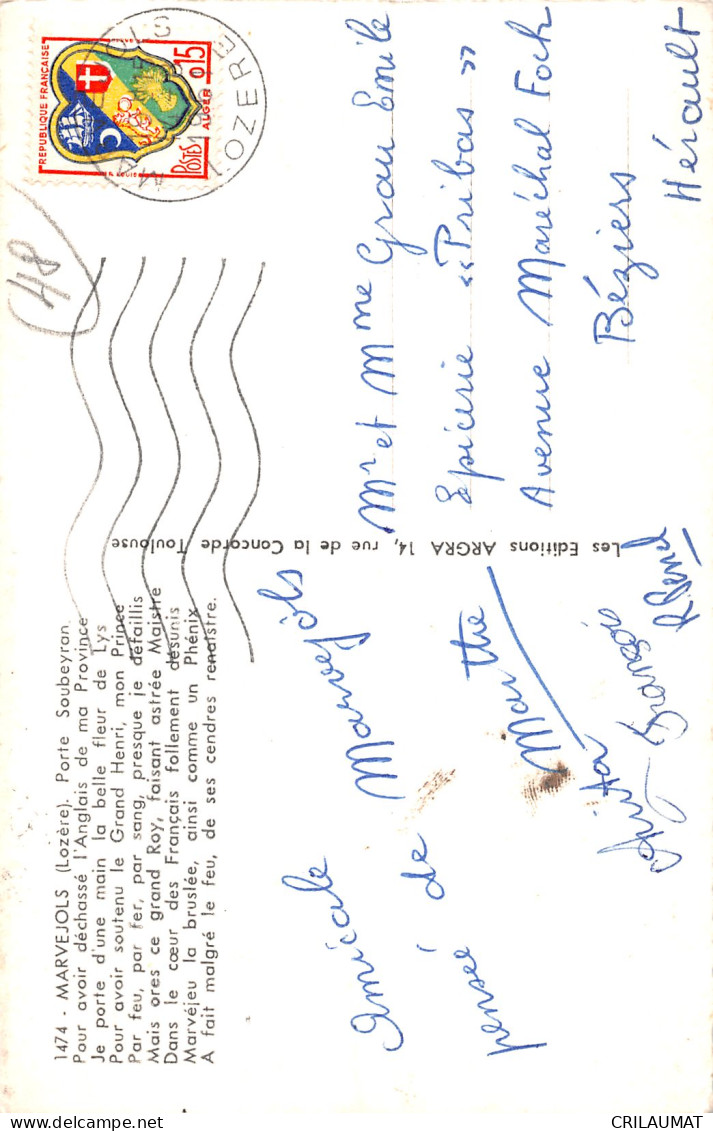 1474 - MARVEJOLS (Lozère). Porte Soubeyron.
Pour avoir déchassé l'Anglais de ma Province
Je porte d'une main la belle fleur de Lys
Pour avoir soutenu le Grand Henri, mon Prince
Par feu, par fer, par sang, presque je défaillis
Mais ores ce grand Roy, faisant astrée Maistre
Dans le cœur des Français follement désunis
Marvéjeu la bruslée, ainsi comme un Phénix
A fait malgré le feu, de ses cendres renaistre.
Amicale
pensée de Marvejols
Marthe
Anita
René
Les Editions ARGRA 14, rue de la Concorde Toulouse
REPUBLIQUE FRANÇAISE
POSTES
ALGER
0,15
LOZERE
48
Mr et Mme Grau Emile
Epicerie « Pribas »
Avenue Maréchal Foch
Béziers
Hérault
CRILAUMAT